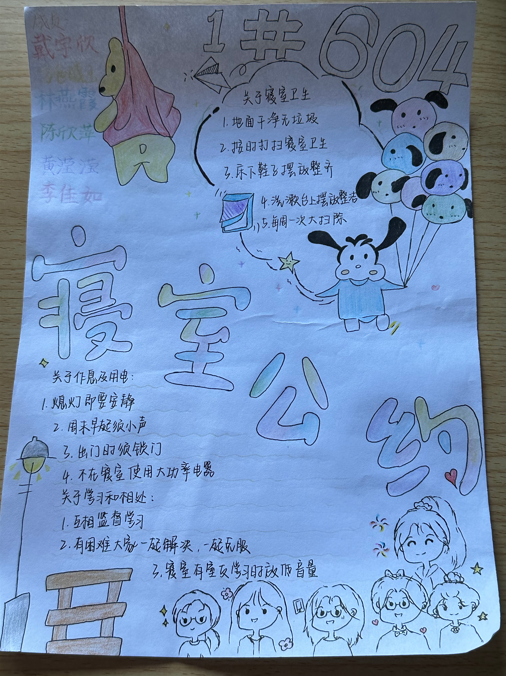 1#604
成员:
戴宇欣
林燕霞
陈欣萍
黄滢滢
李佳如
关于寝室卫生
1.地面干净无垃圾
2.按时打扫寝室卫生
3.床下鞋子摆放整齐
4.洗漱台上摆放整洁
5.每周一次大扫除
寝室公约
关于作息及用电:
1.熄灯即要安静
2.周末早起须小声
3.出门时须锁门
4.不在寝室使用大功率电器
关于学习和相处:
1.互相监督学习
2.有困难大家一起解决,一起克服
3.寝室有室友学习时放低音量